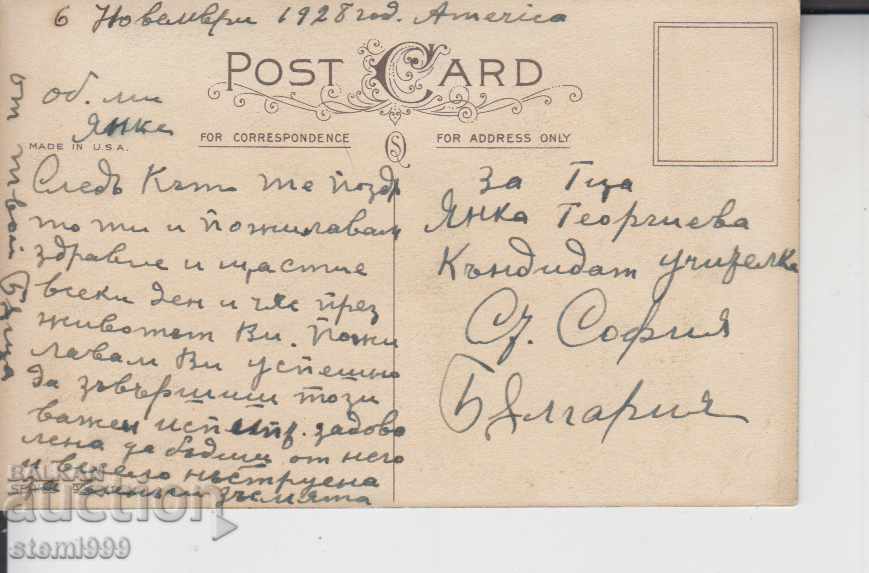 6 Новември 1928 год. America
POST CARD
об. ми
Янке
MADE IN U.S.A.
FOR CORRESPONDENCE
FOR ADDRESS ONLY
Следъ Като те поздр
то ти и пожилавам
здравие и щастие
всеки ден и час през
животът Ви. Пожи
лавам Ви успешно
да зъвършиш този
важен испит. задово
лена да бъдиш от него
и весело
земята
от твой
За Гца
Янка Георгиева
Къндидат учителка
Су. София
България
BALKAN
auction
stemi999